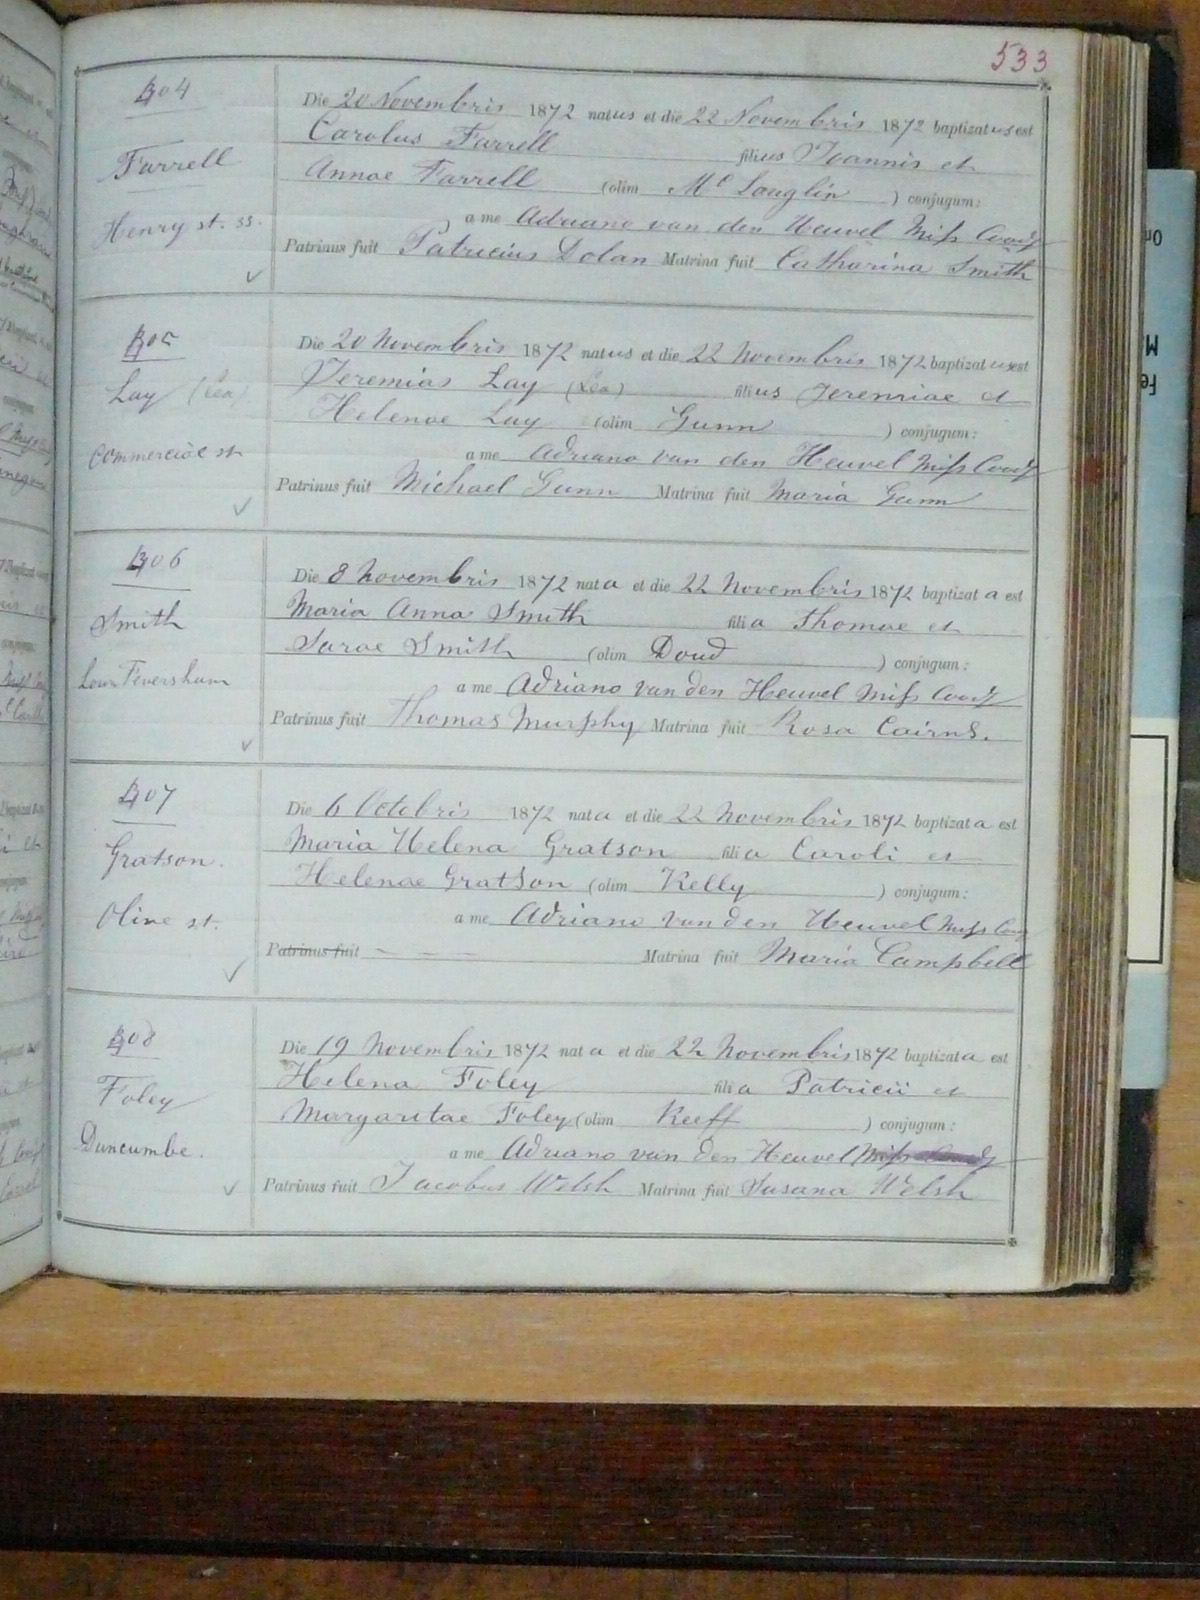 533
804
Farrell
Henry st. ss.
Die 20 Novembris 1872 natus et die 22 Novembris 1872 baptizatus est
Carolus Farrell filius Joannis et
Annae Farrell (olim Mc Laughlin) conjugum:
a me Adriano van den Heuvel Miss
Patrinus fuit Patricius Dolan Matrina fuit Catharina Smith
805
Lay (Lea)
Commercial st
Die 20 Novembris 1872 natus et die 22 Novembris 1872 baptizatus est
Jeremias Lay (Lea) filius Jeremiae et
Helenae Lay (olim Gunn) conjugum:
a me Adriano van den Heuvel Miss
Patrinus fuit Michael Gunn Matrina fuit Maria Gunn
806
Smith
Low Feversham
Die 8 Novembris 1872 nata et die 22 Novembris 1872 baptizata est
Maria Anna Smith filia Thomae et
Sarae Smith (olim Doud) conjugum:
a me Adriano van den Heuvel Miss
Patrinus fuit Thomas Murphy Matrina fuit Rosa Cairns.
807
Gratson.
Olive st.
Die 6 Octobris 1872 nata et die 22 Novembris 1872 baptizata est
Maria Helena Gratson filia Caroli et
Helenae Gratson (olim Kelly) conjugum:
a me Adriano van den Heuvel Miss
Patrinus fuit Matrina fuit Maria Campbell
808
Foley
Duncumbe.
Die 19 Novembris 1872 nata et die 22 Novembris 1872 baptizata est
Helena Foley filia Patricii et
Margaritae Foley (olim Keeff) conjugum:
a me Adriano van den Heuvel Miss
Patrinus fuit Jacobus Welsh Matrina fuit Susana Welsh